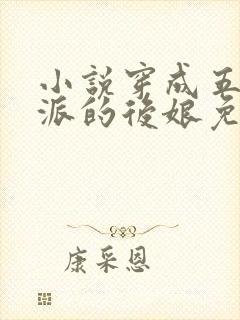 小説穿成五
派的後娘免
康采恩